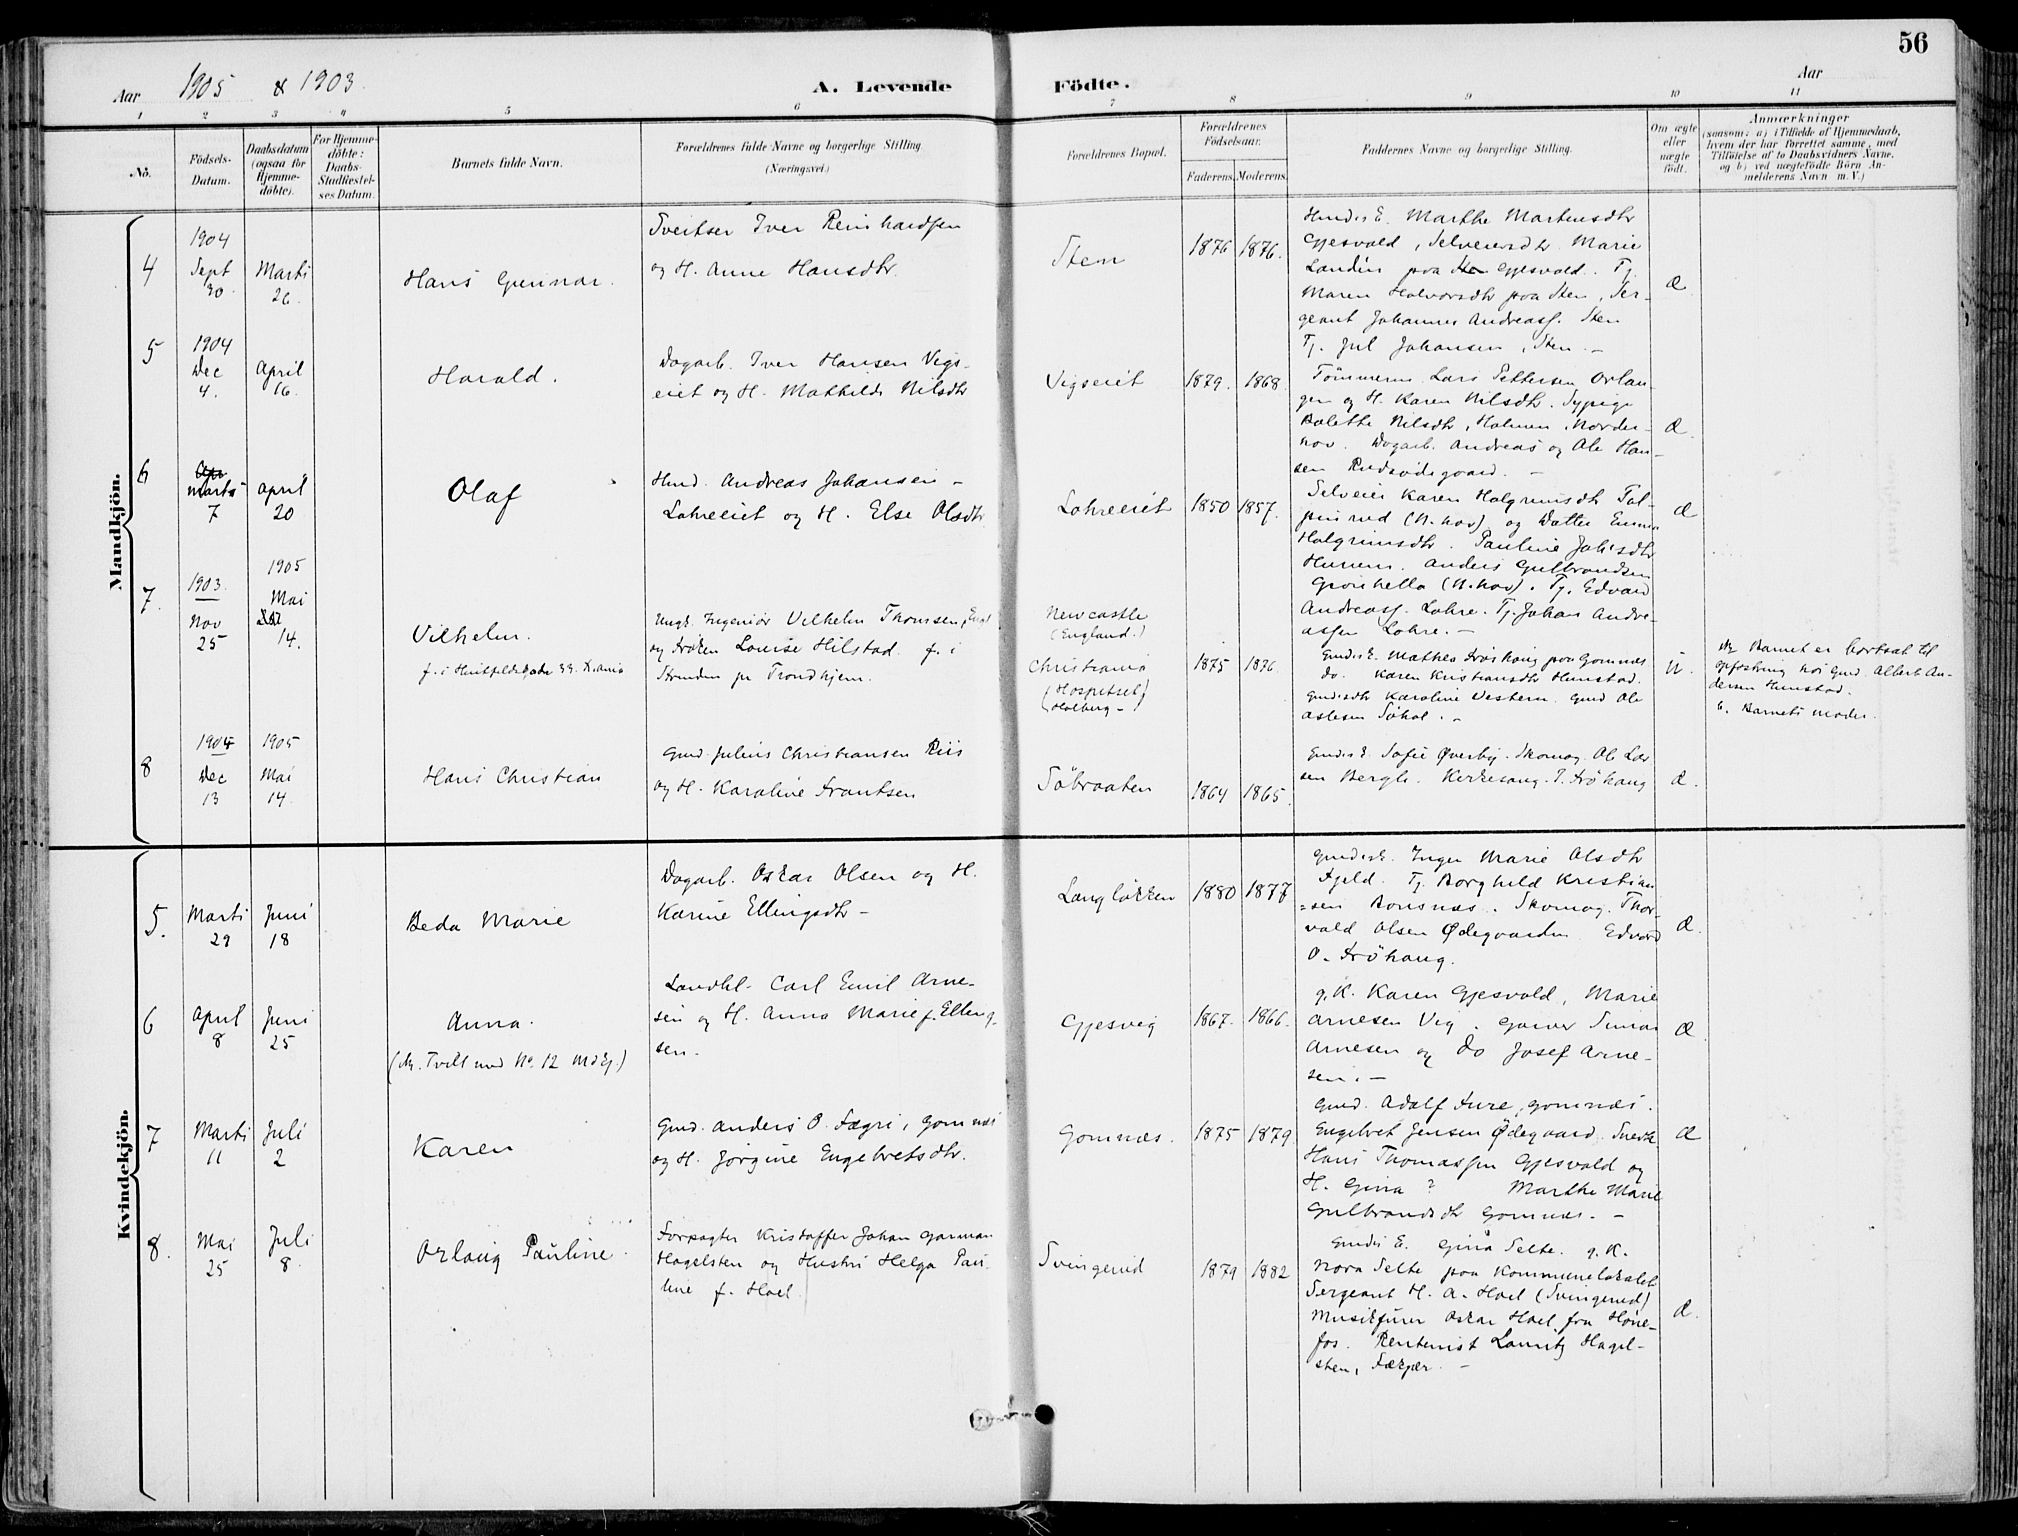 56
Aar 1905 & 1903.
A. Levende Födte.
Aar
1 2 3 4 5 6 7 8 9 10 11
No.
Födsels-Datum.
Daabsdatum (ogsaa for Hjemme-döbte).
For Hjemme-döbte: Daabs-Stadfæstel-ses Datum.
Barnets fulde Navn.
Forældrenes fulde Navne og borgerlige Stilling. (Næringsvei.)
Forældrenes Bopæl.
Forældrenes Födselsaar.
Faderens. Moderens.
Faddernes Navne og borgerlige Stilling.
Om ægte eller uægte födt.
Anmærkninger
(saasom: a) i Tilfælde af Hjemmedaab,
hvem der har forrettet samme, med
Tilföielse af to Daabsvidners Navne,
og b) ved uægtefödte Börn An-
melderens Navn m. V.)
Mandkjön.
4
1904 Sept 30.
Marts 26.
Hans Gunnar.
Sveitser Iver Reinhardsen
og H. Anne Hansdtr.
Sten
1876 1876.
Marthe Martinsdtr
Gjesvold, Marie
poa Gjesvold. Tj.
Maren Halvorsdtr poa Sten, Ser-
geant Johannes Andreass. Sten
Tj. Jul Johansen, Sten. –
Æ
5
1904 Dec 4.
April 16.
Harald.
Dagarb. Iver Hansen Vigs-
eiet og H. Mathilde Nilsdtr
Vigseiet
1879. 1868.
Tömmerm. Lars Pettersen
og H. Karen Nilsdtr. Sypige
Bolette Nilsdtr, Holmen, Norder-
hov. Dagarb. Andreas og Ole Han-
sen
Æ.
6
Marts 7
April 20
Olaf
Hmd. Andreas Johansen –
Lohreeiet og H. Else Olsdtr.
Lohreeiet
1850 1857.
Selveier Karen Halgrimsdtr
(N.hov) og Datter Emma
Halgrimsdtr. Pauline
Anders Gulbrandsen
(N.hov). Tj. Edvard
Andreass. Lohre. Tj. Johan Andre-
assen Lohre. –
Æ
7.
1903. Nov 25
1905 Mai 14.
Vilhelm.
f. i Huitfeldtsgade 33. Kr.ania
Ungk. Ingeniör Vilhelm Thomssen, Engl
og Fröken Louise Hilstad. f. i
Strinden pr Trondhjem.
Newcastle
(England.)
Christiania
(Hospitset)
(Holberg –)
1875 1876.
Mathea Fröshaug poa Gomnæs
do. Karen Kristiansdtr Hunstad.
Karoline Vestern. Gmd Ole
Aslesen Söhol. –
U.
Barnet er bortsat til
opfostring hos Gmd. Albert An-
dersen Hunstad.
b. Barnets moder.
8
1904 Dec 13
1905 Mai 14.
Hans Christian
Gmd. Julius Christiansen Riis
og H. Karoline Frantsen
Söbraaten
1864 1865.
Sofie Överby. Skomag. Ole Lar-
sen Bergli. Kirkesang. P. Fröhaug
Æ.
Kvindekjön.
5.
Marts 29
Juni 18
Beda Marie
Dagarb. Oskar Olsen og H.
Karine Ellingsdtr –
Langlökken
1880 1877
Inger Marie Olsdtr
Fjeld. Tj. Borghild Kristian
=sen Bönsnæs. Skomag. Thor-
vald Olsen Ödegaarden Edvard
O. Fröhaug.
Æ.
6
April 8
Juni 25
Anna.
(N. Tvill. med No. 12 Mdkj.)
Landhl. Carl Emil Arne-
sen og H. Anna Marie f. Elling-
sen.
Gjesvig
1867. 1866.
g. K. Karen Gjesvold, Marie
Arnesen Vig. Garver Simon
Arnesen og Do Josef Arne-
sen. –
Æ.
7
Marts 11
Juli 2
Karen
Gmd. Anders O. Fægri, Gomnæs
og H. Jörgine Engebretsdtr.
Gomnæs.
1875 1879
Gmd. Adolf Fure, Gomnæs.
Engebret Jensen Ödegaard. Snedk
Hans Thomassen Gjesvold og
H. Gina ? Marthe Marie
Gulbrandsdtr Gomnæs. –
Æ
8.
Mai 25
Juli 8.
Orlaug Pauline.
Forpagter Kristoffer Johan Garman
Hagelsten og Hustru Helga Pau-
line f. Hoel.
Svingerud
1879 1882
Gmds E. Gina Selte. g. K.
Nora Selte poa Kommunelokalet
Sergeant H. A. Hoel (Svingerud)
Musikfürer Oskar Hoel fra Höne-
fos. Rentenist Lauritz Hagel-
sten,
Æ.